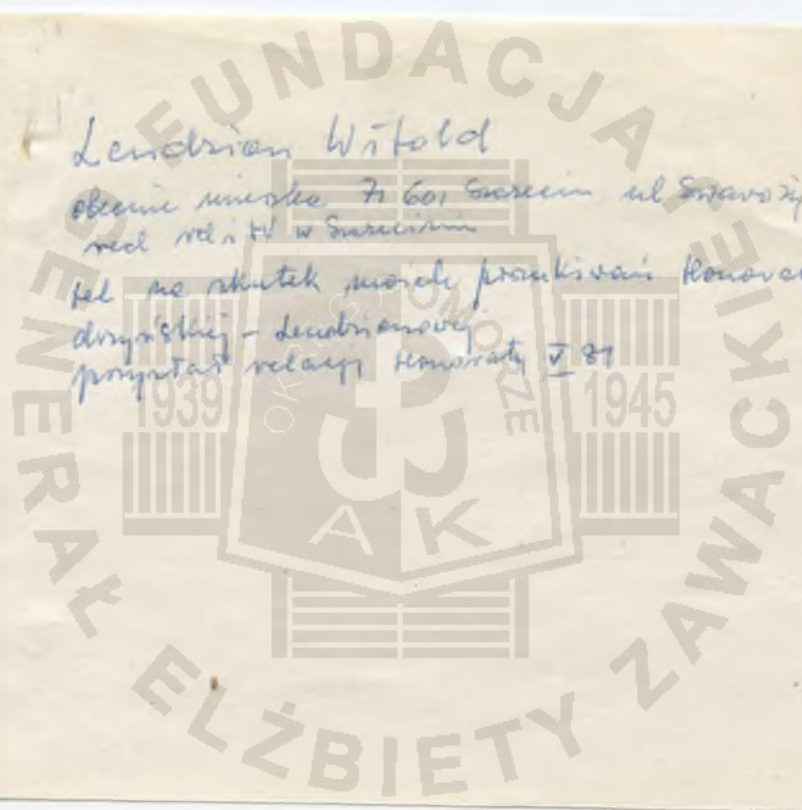 Lendzion Witold
obecnie mieszka 71 601 Szczecin ul
red rd i TV w Szczecinie
tel na skutek moich poszukiwań Honorat
drzyńskiej - Lendzionowej
przysłał relację Honoraty V 81
FUNDACJA GENERAŁ ELŻBIETY ZAWACKIEJ
OKRĘG POMORZE
1939 1945
AK